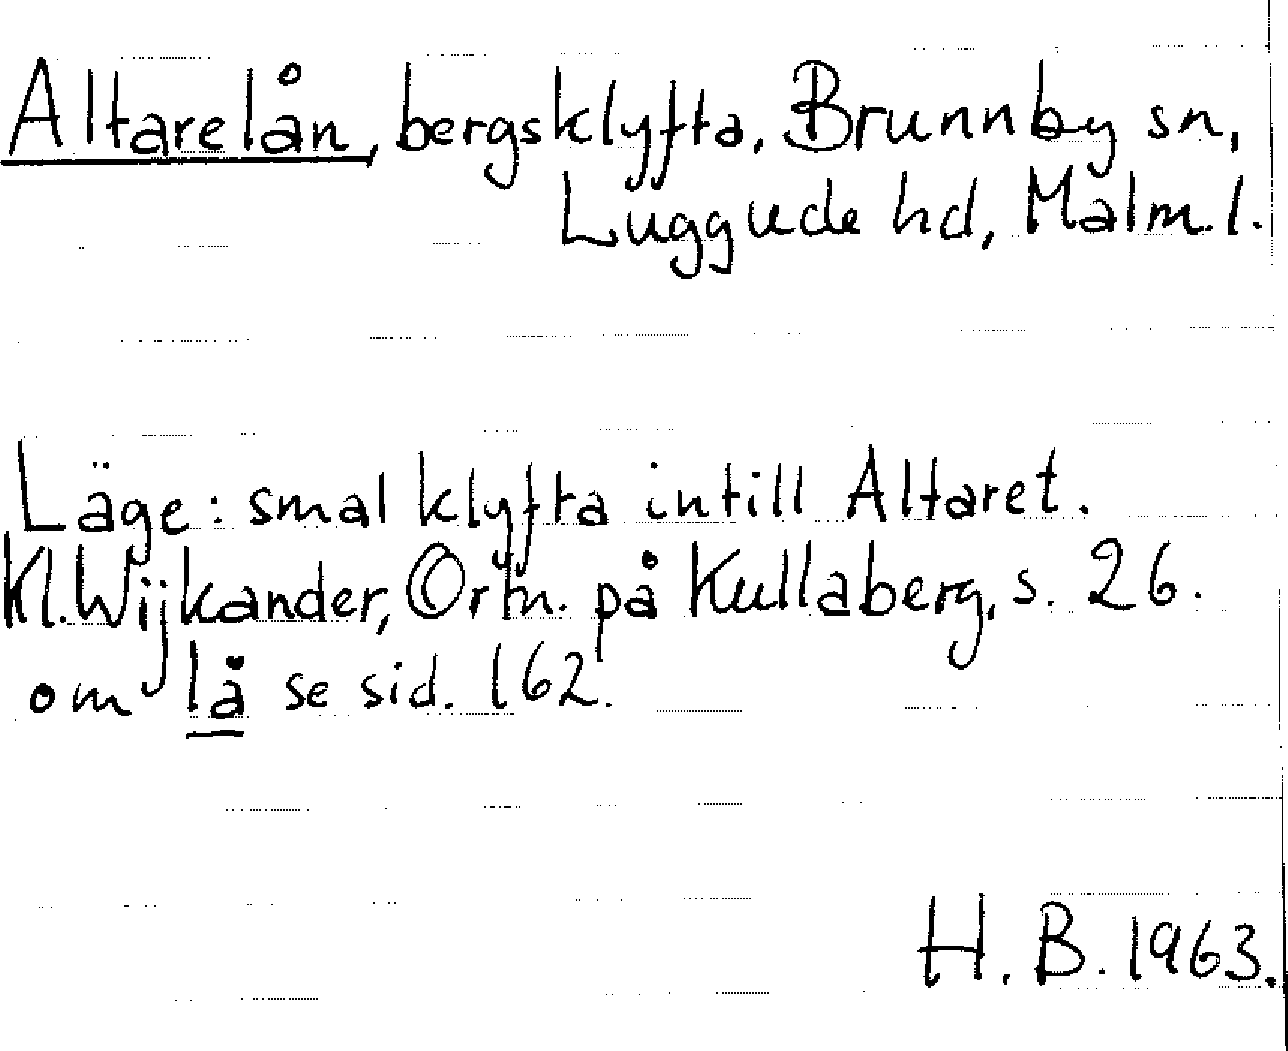 Altarelån, bergsklyfta, Brunnby sn,
Luggude hd, Malm.l.
Läge: smal klyfta intill Altaret.
Kl. Wijkander, Ortn. på Kullaberg, s. 26.
om lå se sid. 162.
H. B. 1963.